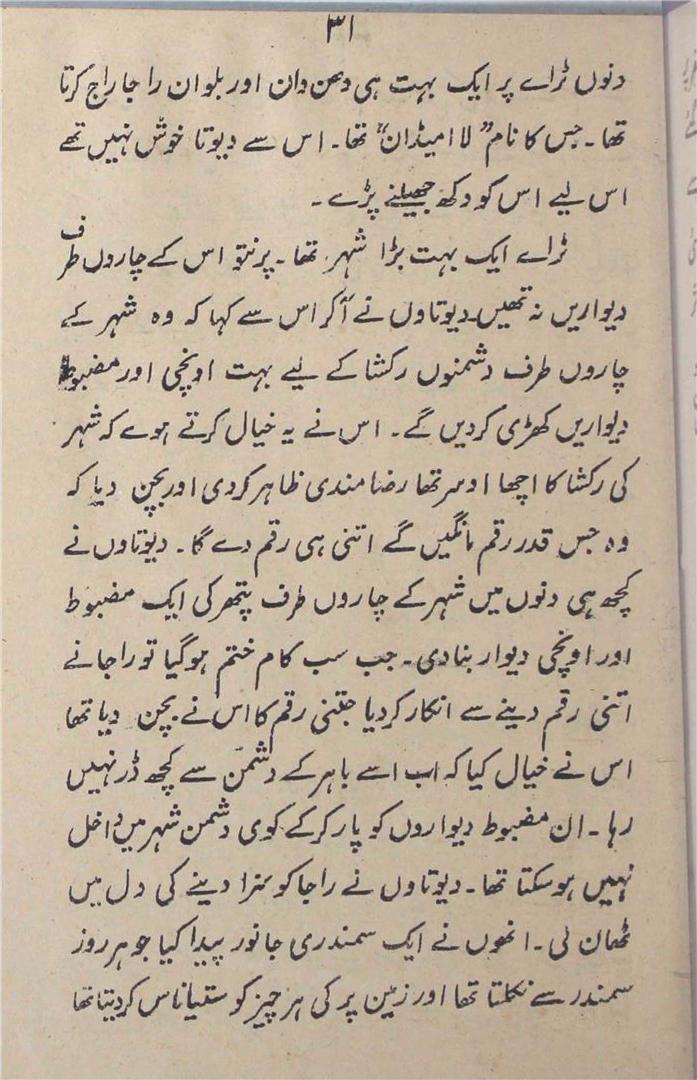 ۳۱
دنوں ٹراے پر ایک بہت ہی دھن وان اور بلوان راجا راج کرتا
تھا۔ جس کا نام ”لاامیڈان“ تھا۔ اس سے دیوتا خوش نہیں تھے
اس لیے اس کو دکھ جھیلنے پڑے۔
ٹراے ایک بہت بڑا شہر تھا۔ پرنتو اس کے چاروں طرف
دیواریں نہ تھیں۔ دیوتاوں نے آکر اس سے کہا کہ وہ شہر کے
چاروں طرف دشمنوں رکشا کے لیے بہت اونچی اور مضبوط
دیواریں کھڑی کردیں گے۔ اس نے یہ خیال کرتے ہوے کہ شہر
کی رکشا کا اچھا اوسر تھا رضامندی ظاہر کردی اور بچن دیا کہ
وہ جس قدر رقم مانگیں گے اتنی ہی رقم دے گا۔ دیوتاوں نے
کچھ ہی دنوں میں شہر کے چاروں طرف پتھر کی ایک مضبوط
اور اونچی دیوار بنادی۔ جب سب کام ختم ہوگیا تو راجا نے
اتنی رقم دینے سے انکار کردیا جتنی رقم کا اس نے بچن دیا تھا
اس نے خیال کیا کہ اب اسے باہر کے دشمن سے کچھ ڈر نہیں
رہا۔ ان مضبوط دیواروں کو پار کرکے کوی دشمن شہر میں داخل
نہیں ہوسکتا تھا۔ دیوتاوں نے راجا کو سزا دینے کی دل میں
ٹھان لی۔ انھوں نے ایک سمندری جانور پیدا کیا جو ہر روز
سمندر سے نکلتا تھا اور زمین پر کی ہر چیز کو ستیاناس کردیتا تھا